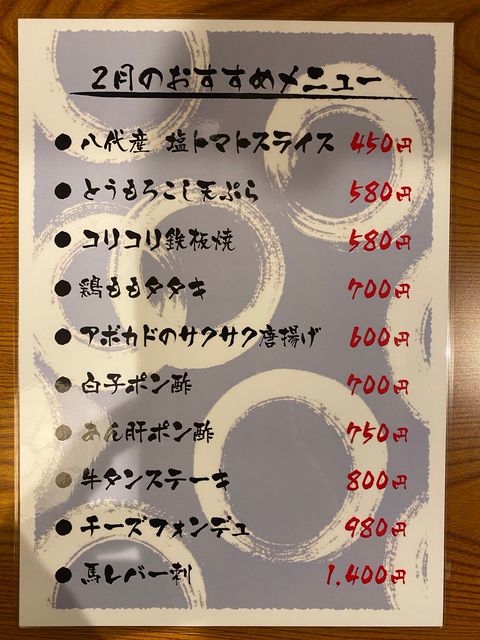 2月のおすすめメニュー
● 八代産 塩トマトスライス 450円
● とうもろこし天ぷら 580円
● コリコリ鉄板焼 580円
● 鶏ももタタキ 700円
● アボカドのサクサク唐揚げ 600円
● 白子ポン酢 700円
● あん肝ポン酢 750円
● 牛タンステーキ 800円
● チーズフォンデュ 980円
● 馬レバー刺 1,400円